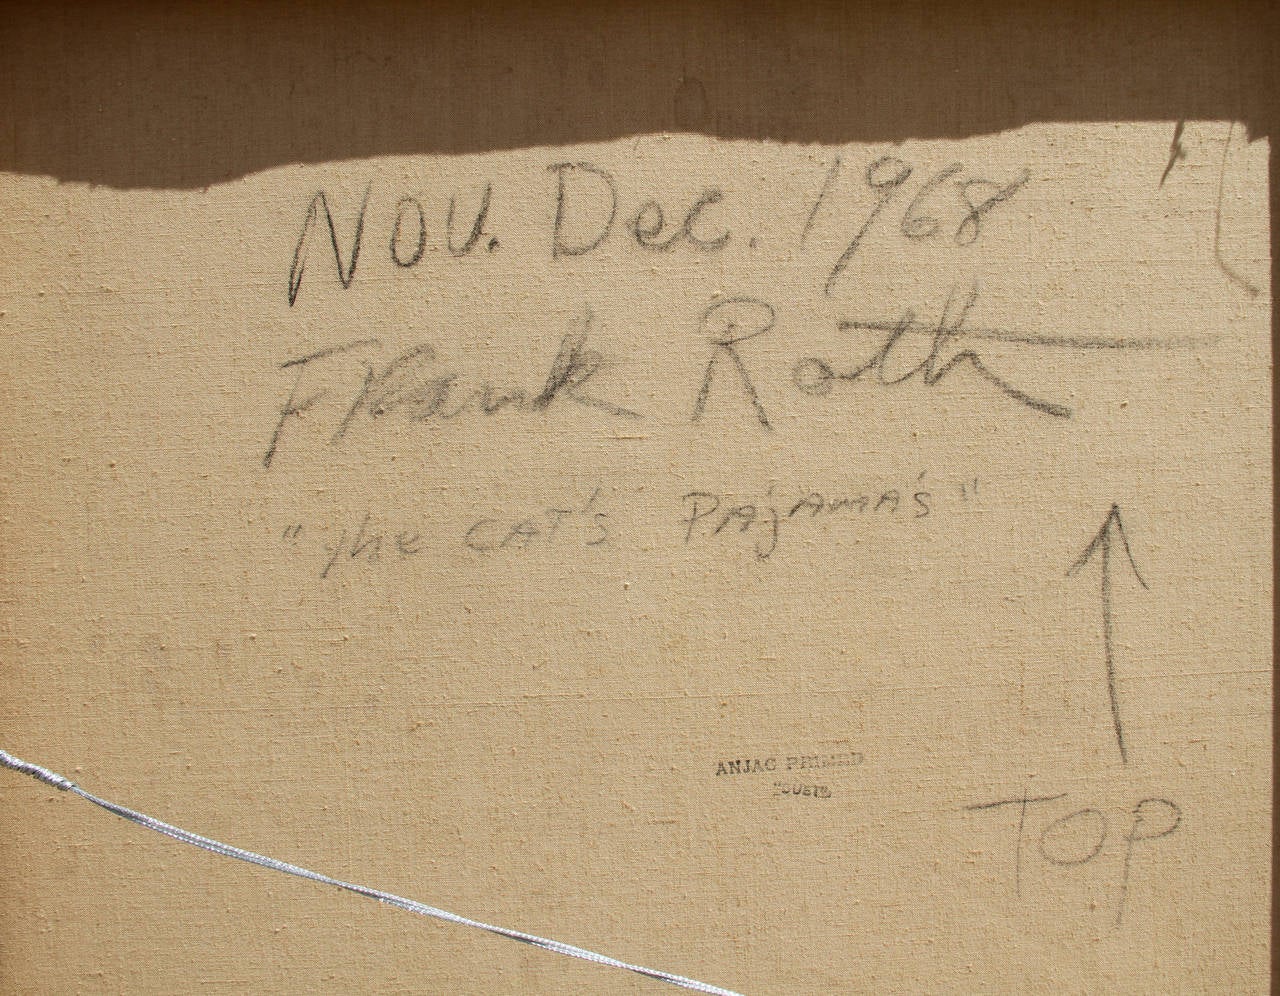 Nov. Dec. 1968
Frank Roth
"The CAT's PAjAMA's"
ANJAC PRIMED
TOP